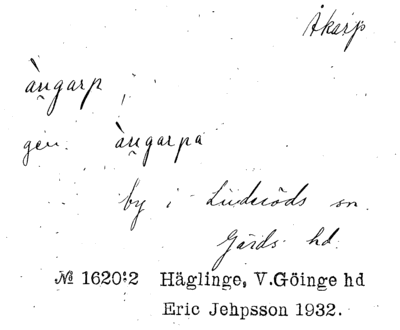 Åkarp
àn̬garp ;
gen. àn̬garpa
by i Linderöds sn.
Gärds hd.
№ 1620:2 Häglinge, V.Göinge hd
Eric Jehpsson 1932.